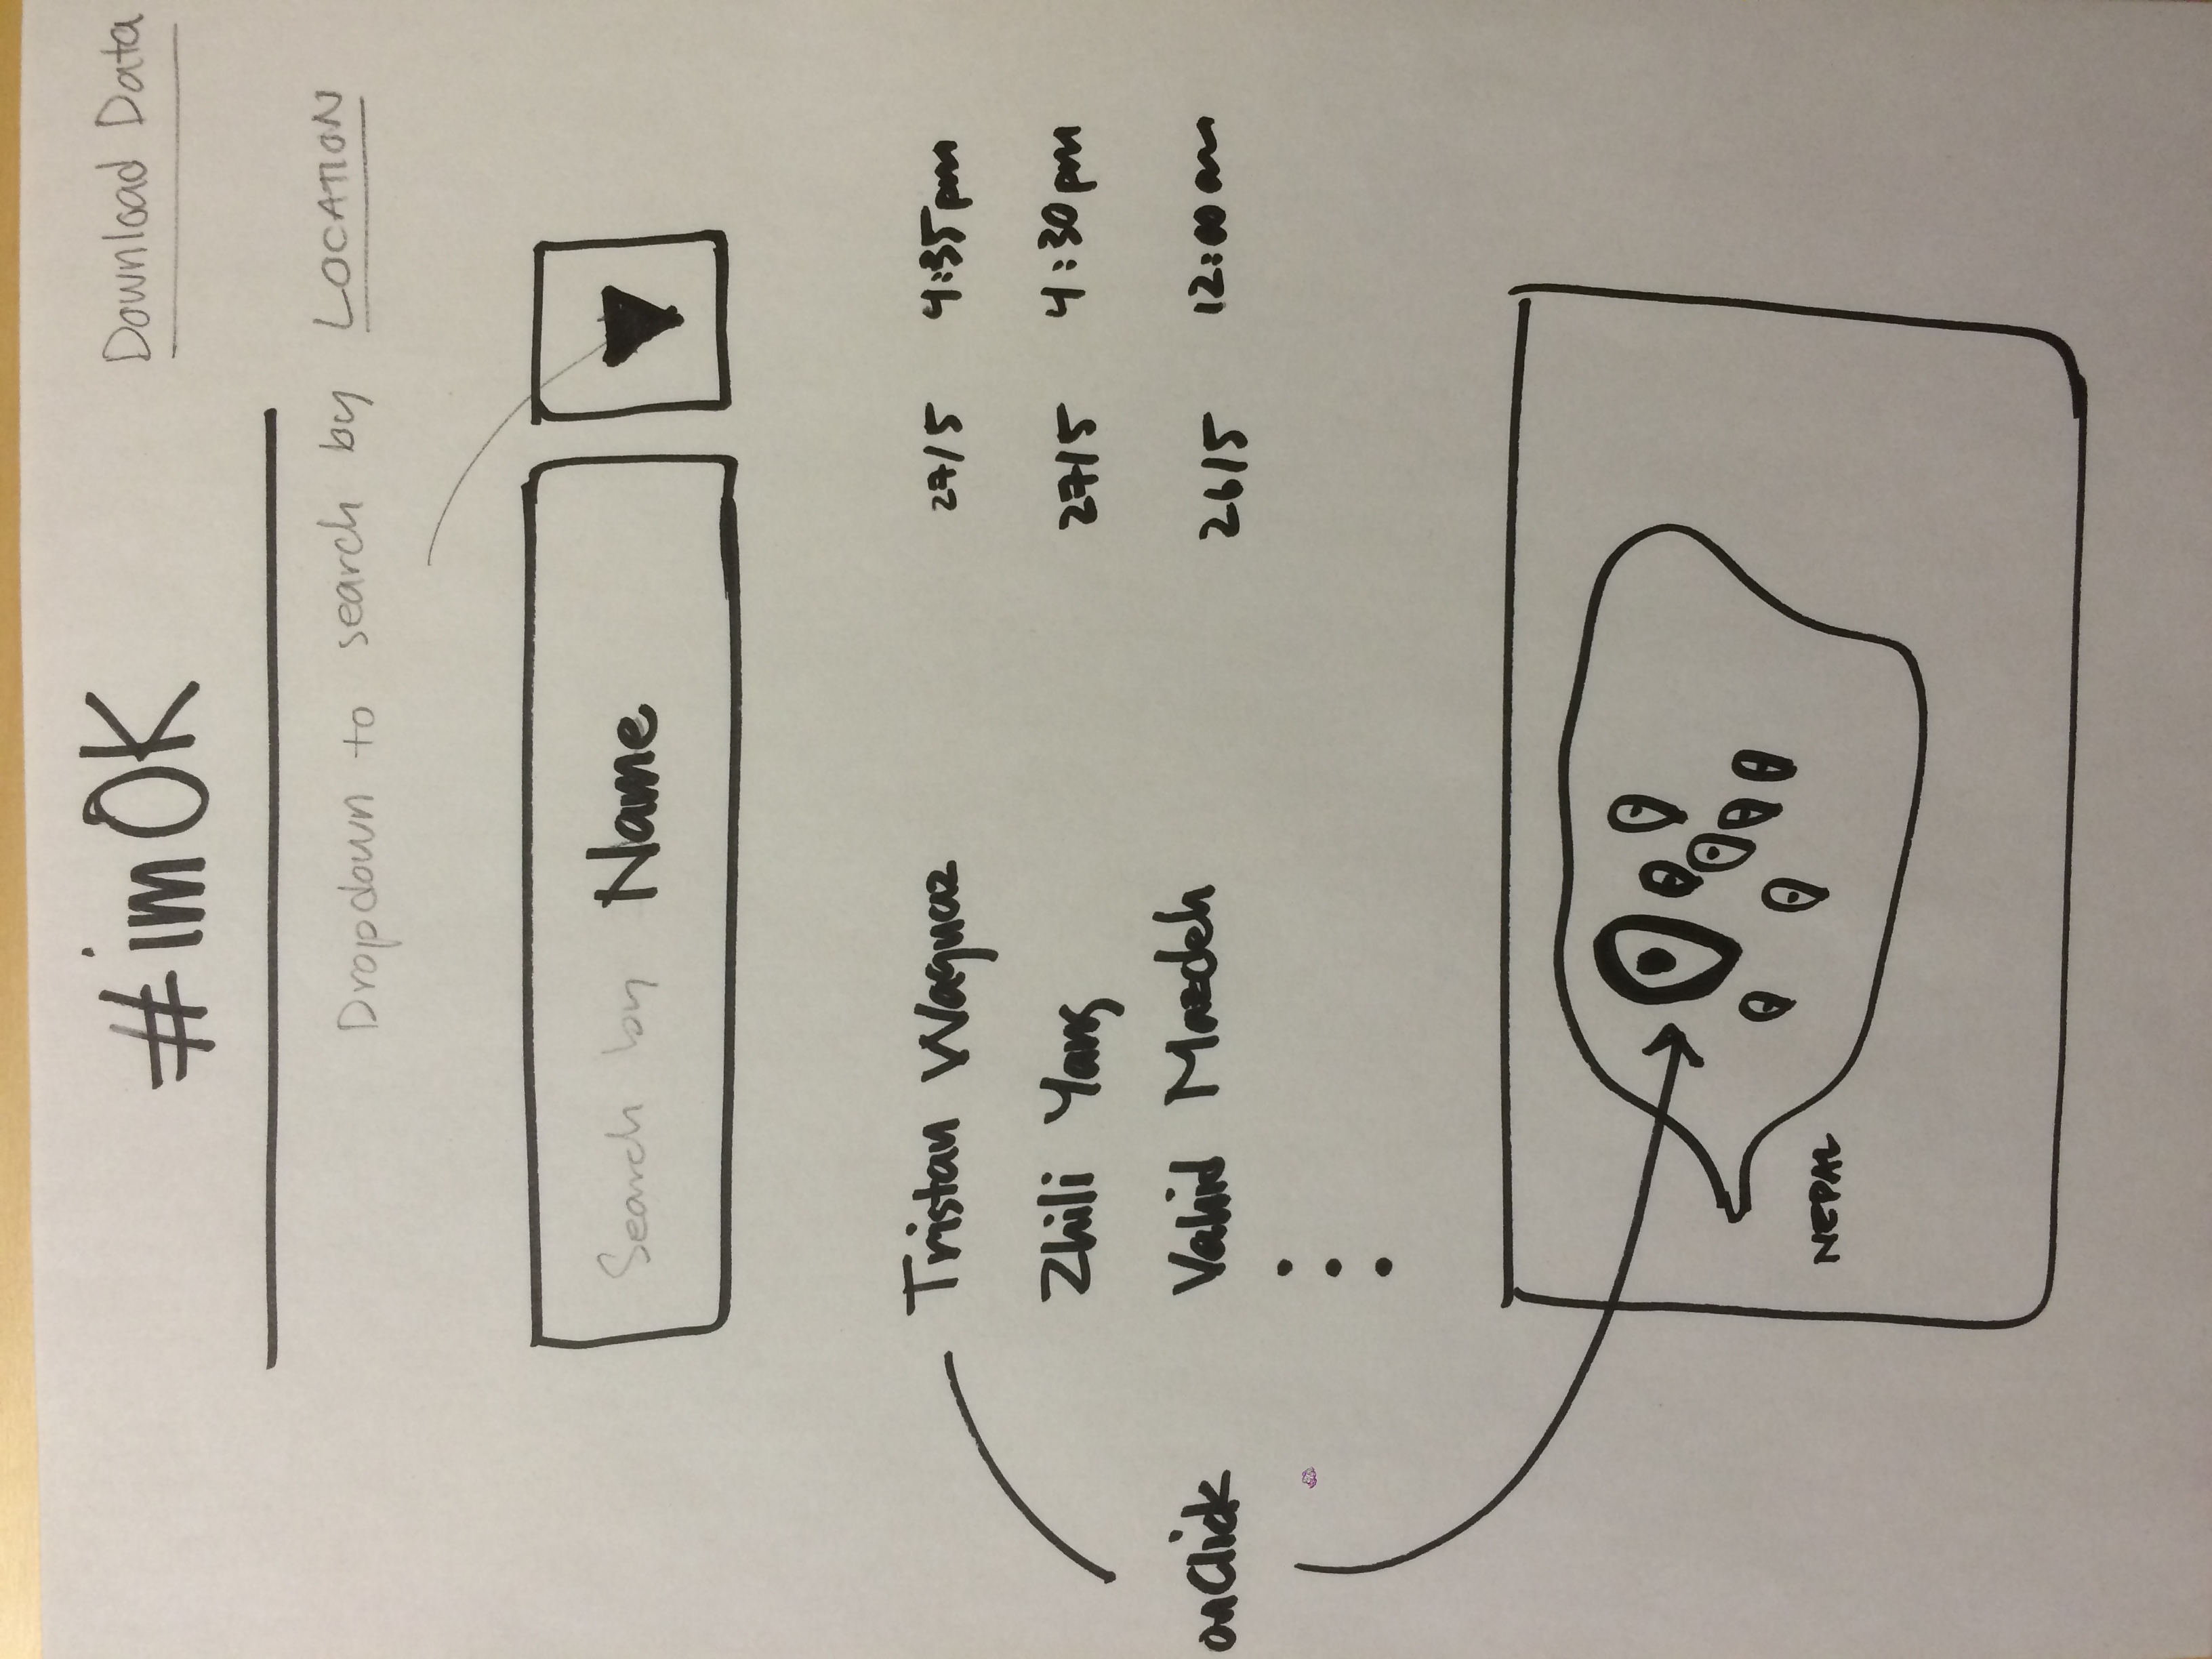 #imOK
Download Data
Dropdown to search by LOCATION
Search by Name
Tristan Wagnaz 27/5 4:35pm
Zhili Yang 27/5 4:30pm
Vahid Mazdeh 26/5 12:00am
onClick
NEPAL